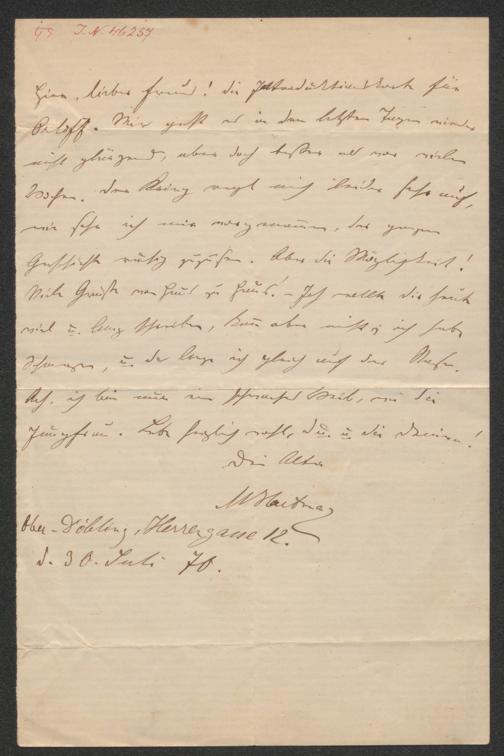 I. N. 46257
Hier, lieber Freund! die Introduktionskarte für
Orloff. Mir geht es in den letzten Tagen wieder
nicht glänzend, aber doch besser als vor vielen
Wochen. Der Krieg regt mich leider sehr auf,
wie sehr ich mir vorgenommen, der ganzen
Geschichte ruhig zuzusehen. Aber die Möglichkeit!
Viele Grüße von Haus zu Haus! – Ich wollte dir heute
viel u. lang schreiben, kann aber nicht; ich habe
Schmerzen, u. da liege ich gleich auf der Nase.
Ach, ich bin nur ein schwaches Weib, wie die
Jungfrau. Lebe herzlich wohl, Du u. die Deinen!
Dein alter
Ober-Döbling, Herrengasse 12.
d. 30. Juli 70.